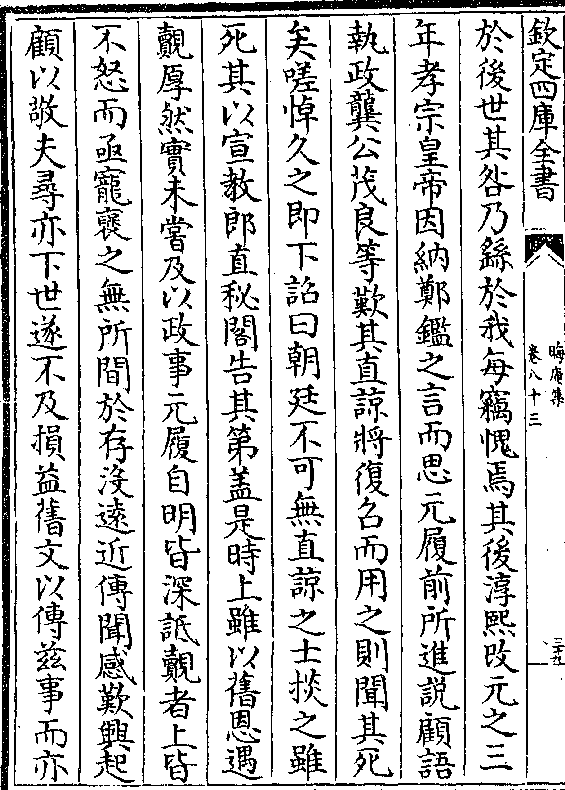 欽定四庫全書
晦庵集
卷八十三
三十九
於後世其咎乃繇於我每竊愧焉其後淳熙改元之三
年孝宗皇帝因納鄭鑑之言而思元履前所進説顧語
執政龔公茂良等歎其直諒將復召而用之則聞其死
矣嗟悼久之即下詔曰朝廷不可無直諒之士掞之雖
死其以宣教郎直秘閣告其第蓋是時上雖以舊恩遇
覿厚然實未嘗及以政事元履自明皆深詆覿者上皆
不怒而亟寵襃之無所間於存沒逺近傳聞感歎興起
顧以敬夫尋亦下世遂不及損益舊文以傳兹事而亦